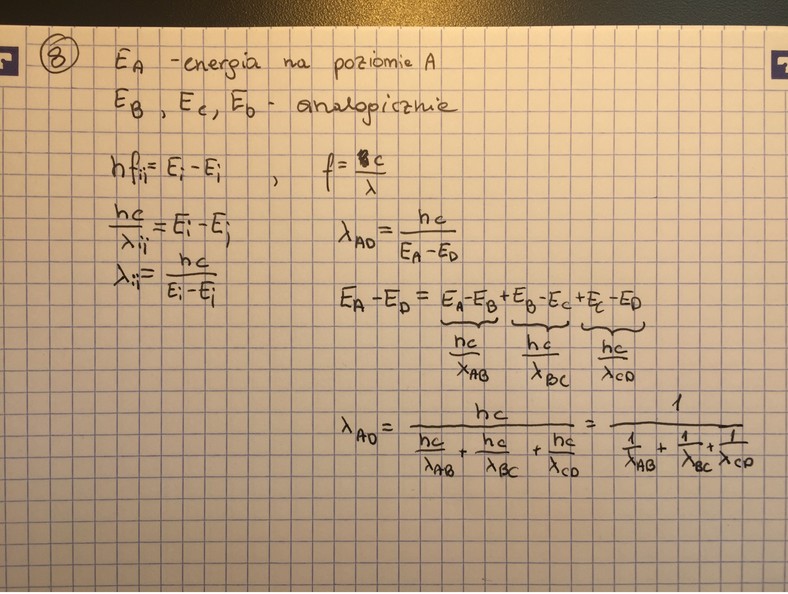 8 E_A - energia na poziomie A
E_B, E_C, E_D - analogicznie
hf_ij = E_i - E_j , f = c/λ
hc/λ_ij = E_i - E_j
λ_ij = hc/(E_i - E_j)
λ_AD = hc/(E_A - E_D)
E_A - E_D = E_A - E_B + E_B - E_C + E_C - E_D
hc/λ_AB hc/λ_BC hc/λ_CD
λ_AD = hc/(hc/λ_AB + hc/λ_BC + hc/λ_CD) = 1/(1/λ_AB + 1/λ_BC + 1/λ_CD)